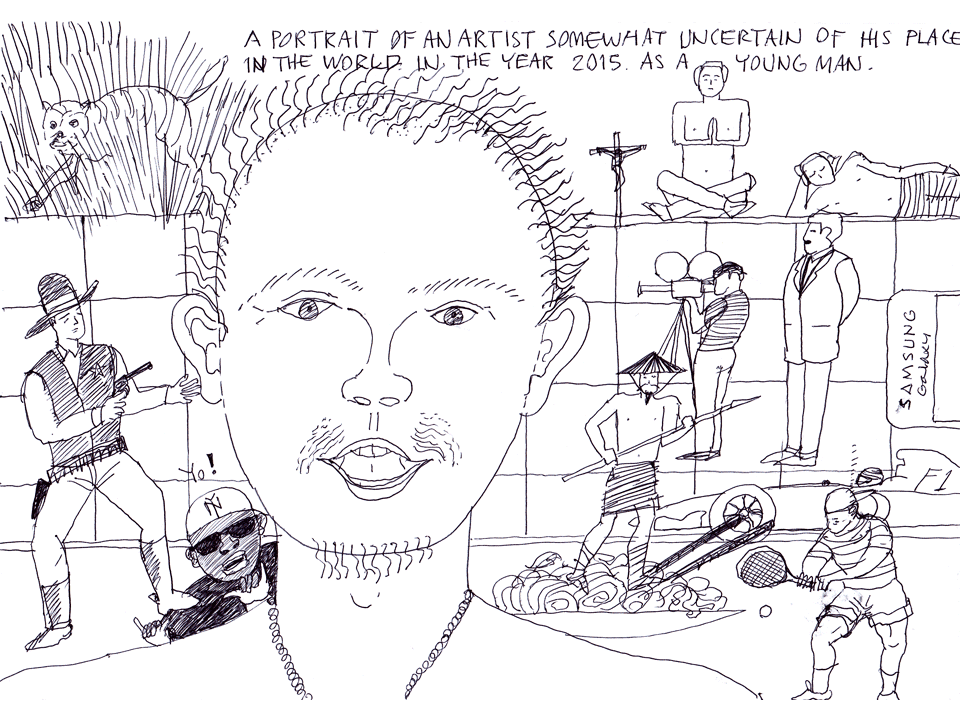 A PORTRAIT OF AN ARTIST SOMEWHAT UNCERTAIN OF HIS PLACE
IN THE WORLD. IN THE YEAR 2015. AS A YOUNG MAN.
SAMSUNG
GALAXY
Yo!
NY
F1